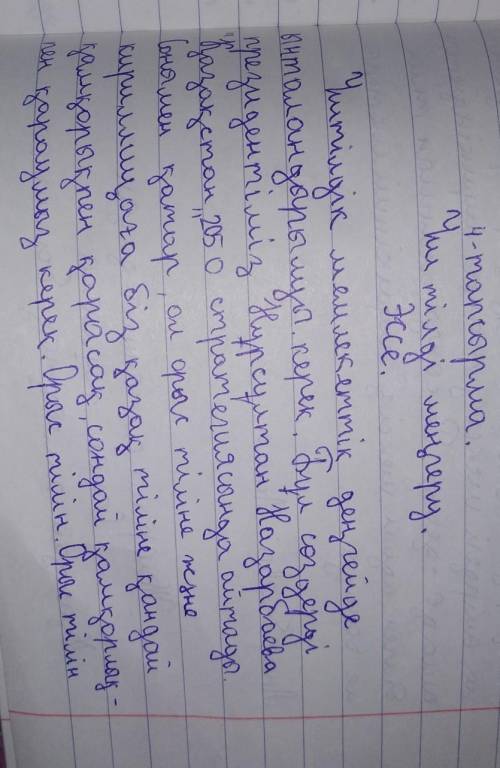 4-тапсырма.
Үш тілді меңгеру.
Эссе.
Үштілдік мемлекеттік деңгейде
ынталандырылуы керек. Бұл сөздерді
президентіміз Нұрсұлтан Назарбаева
"Қазақстан "2050 стратегиясында айтады.
Сонымен қатар, ол орыс тіліне және
кириллицаға біз қазақ тіліне қандай
қамқорықпен қарасақ, сондай қамқорлық-
пен қарауымыз керек. Орыс тілін. Орыс тілін